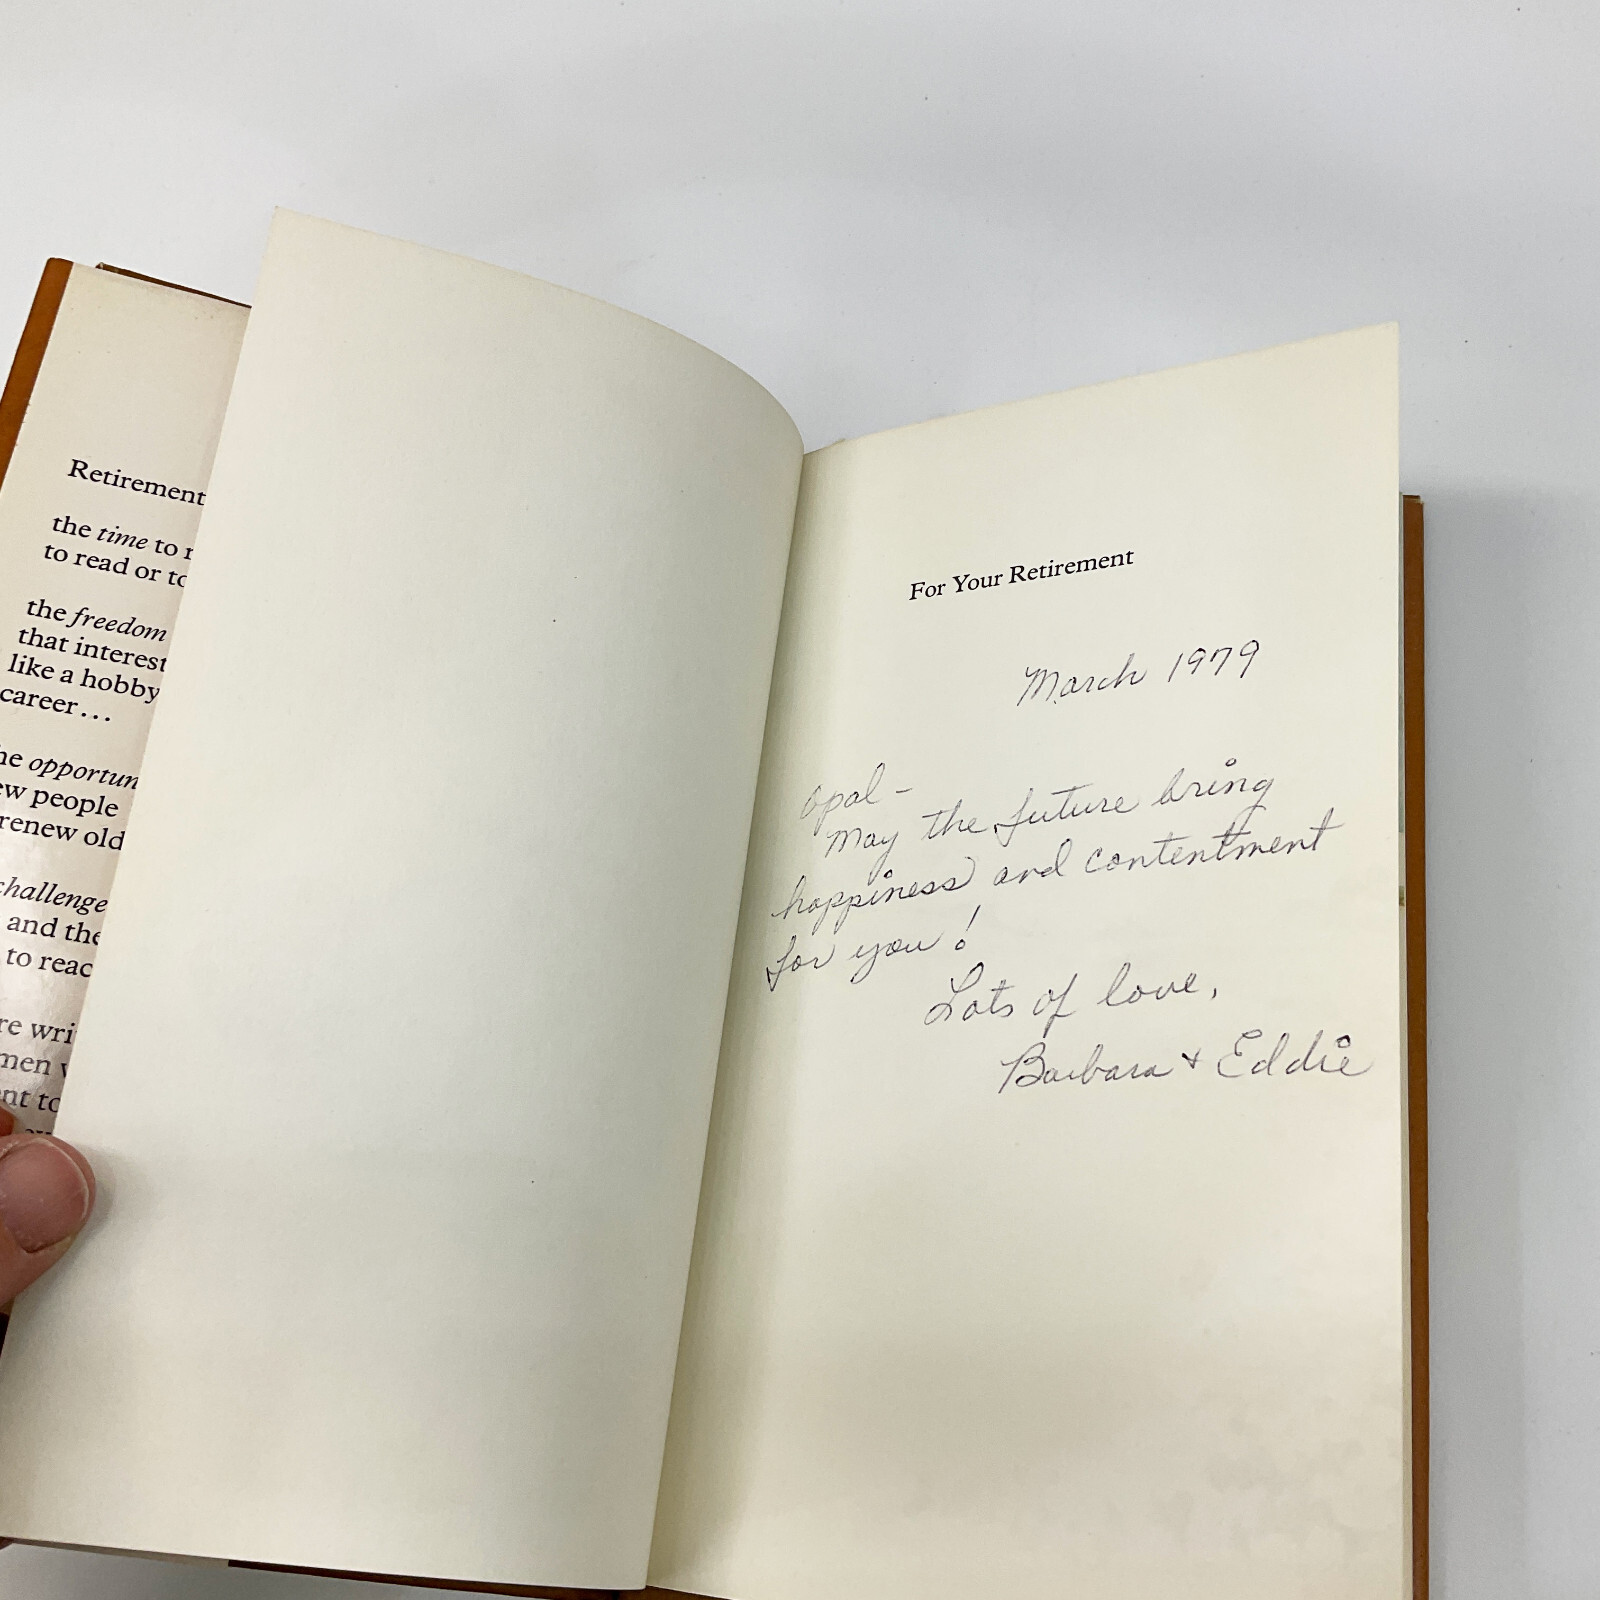 Retirement
the time to r
to read or to
the freedom
that interest
like a hobby
career...
he opportun
ew people
renew old
challenge
and the
to reac
re wri
men
nt to
For Your Retirement
March 1979
Opal -
May the future bring
happiness and contentment
for you!
Lots of love,
Barbara + Eddie